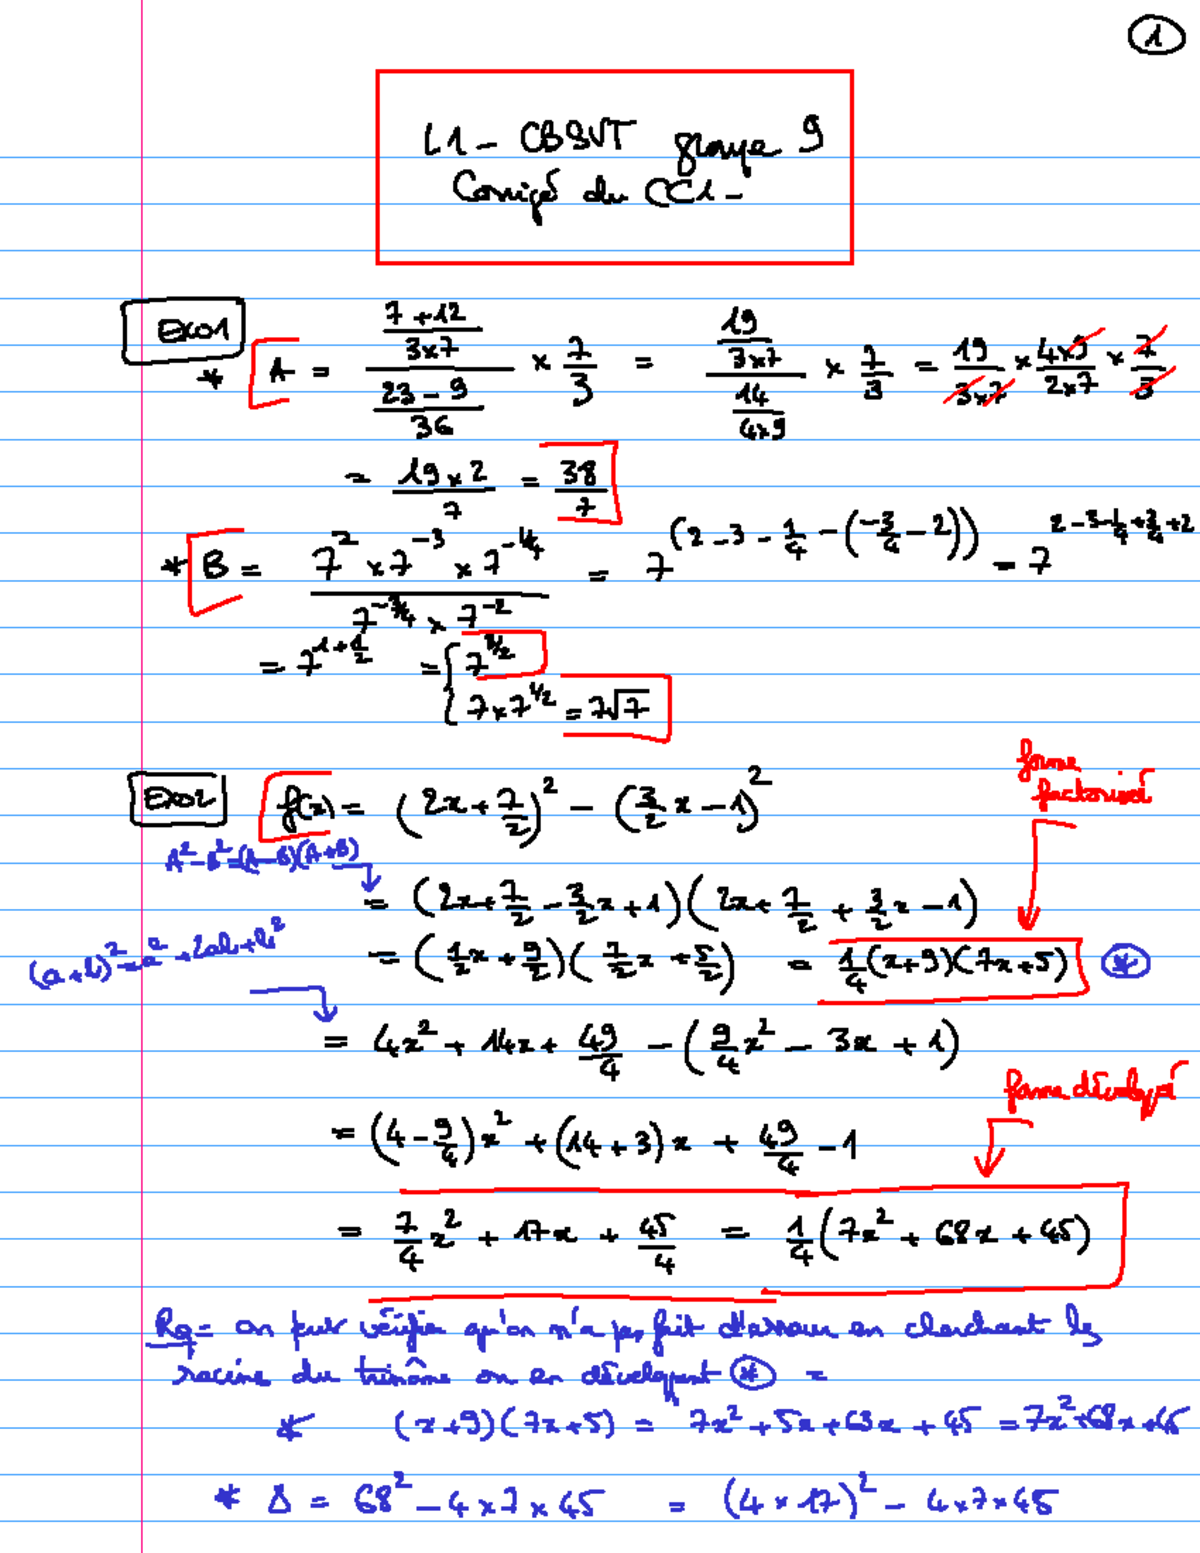 1
L1 - CBSVT groupe 9
Corrigé du CC1 -
Exo1
* A = ((7+12)/(3×7))/((23-9)/36) × 7/3 = (19/(3×7))/(14/(4×9)) × 7/3 = 19/(3×7) × (4×9)/(2×7) × 7/3
= (19×2)/7 = 38/7
* B = (7^2 × 7^-3 × 7^-1/4)/(7^-3/4 × 7^-2) = 7^(2-3-1/4-(-3/4-2)) = 7^2-3-1/4+3/4+2
= 7^1+1/2 = { 7^3/2
7×7^1/2 = 7√7
forme factorisé
Exo2 f(x) = (2x+7/2)^2 - (3/2 x - 1)^2
A^2-B^2=(A-B)(A+B)
= (2x+7/2-3/2 x+1)(2x+7/2+3/2 x-1)
(a+b)^2=a^2+2ab+b^2
= (1/2 x+9/2)(7/2 x+5/2) = 1/4(x+9)(7x+5) *
= 4x^2 + 14x + 49/4 - (9/4 x^2 - 3x + 1)
forme développé
= (4-9/4)x^2 + (14+3)x + 49/4 - 1
= 7/4 x^2 + 17x + 45/4 = 1/4(7x^2 + 68x + 45)
Rq= on peut vérifier qu'on n'a pas fait d'erreur en cherchant les
racine du trinôme ou en développent * =
* (x+9)(7x+5) = 7x^2+5x+63x+45 = 7x^2+68x+45
* Δ = 68^2 - 4×7×45 = (4×17)^2 - 4×7×45